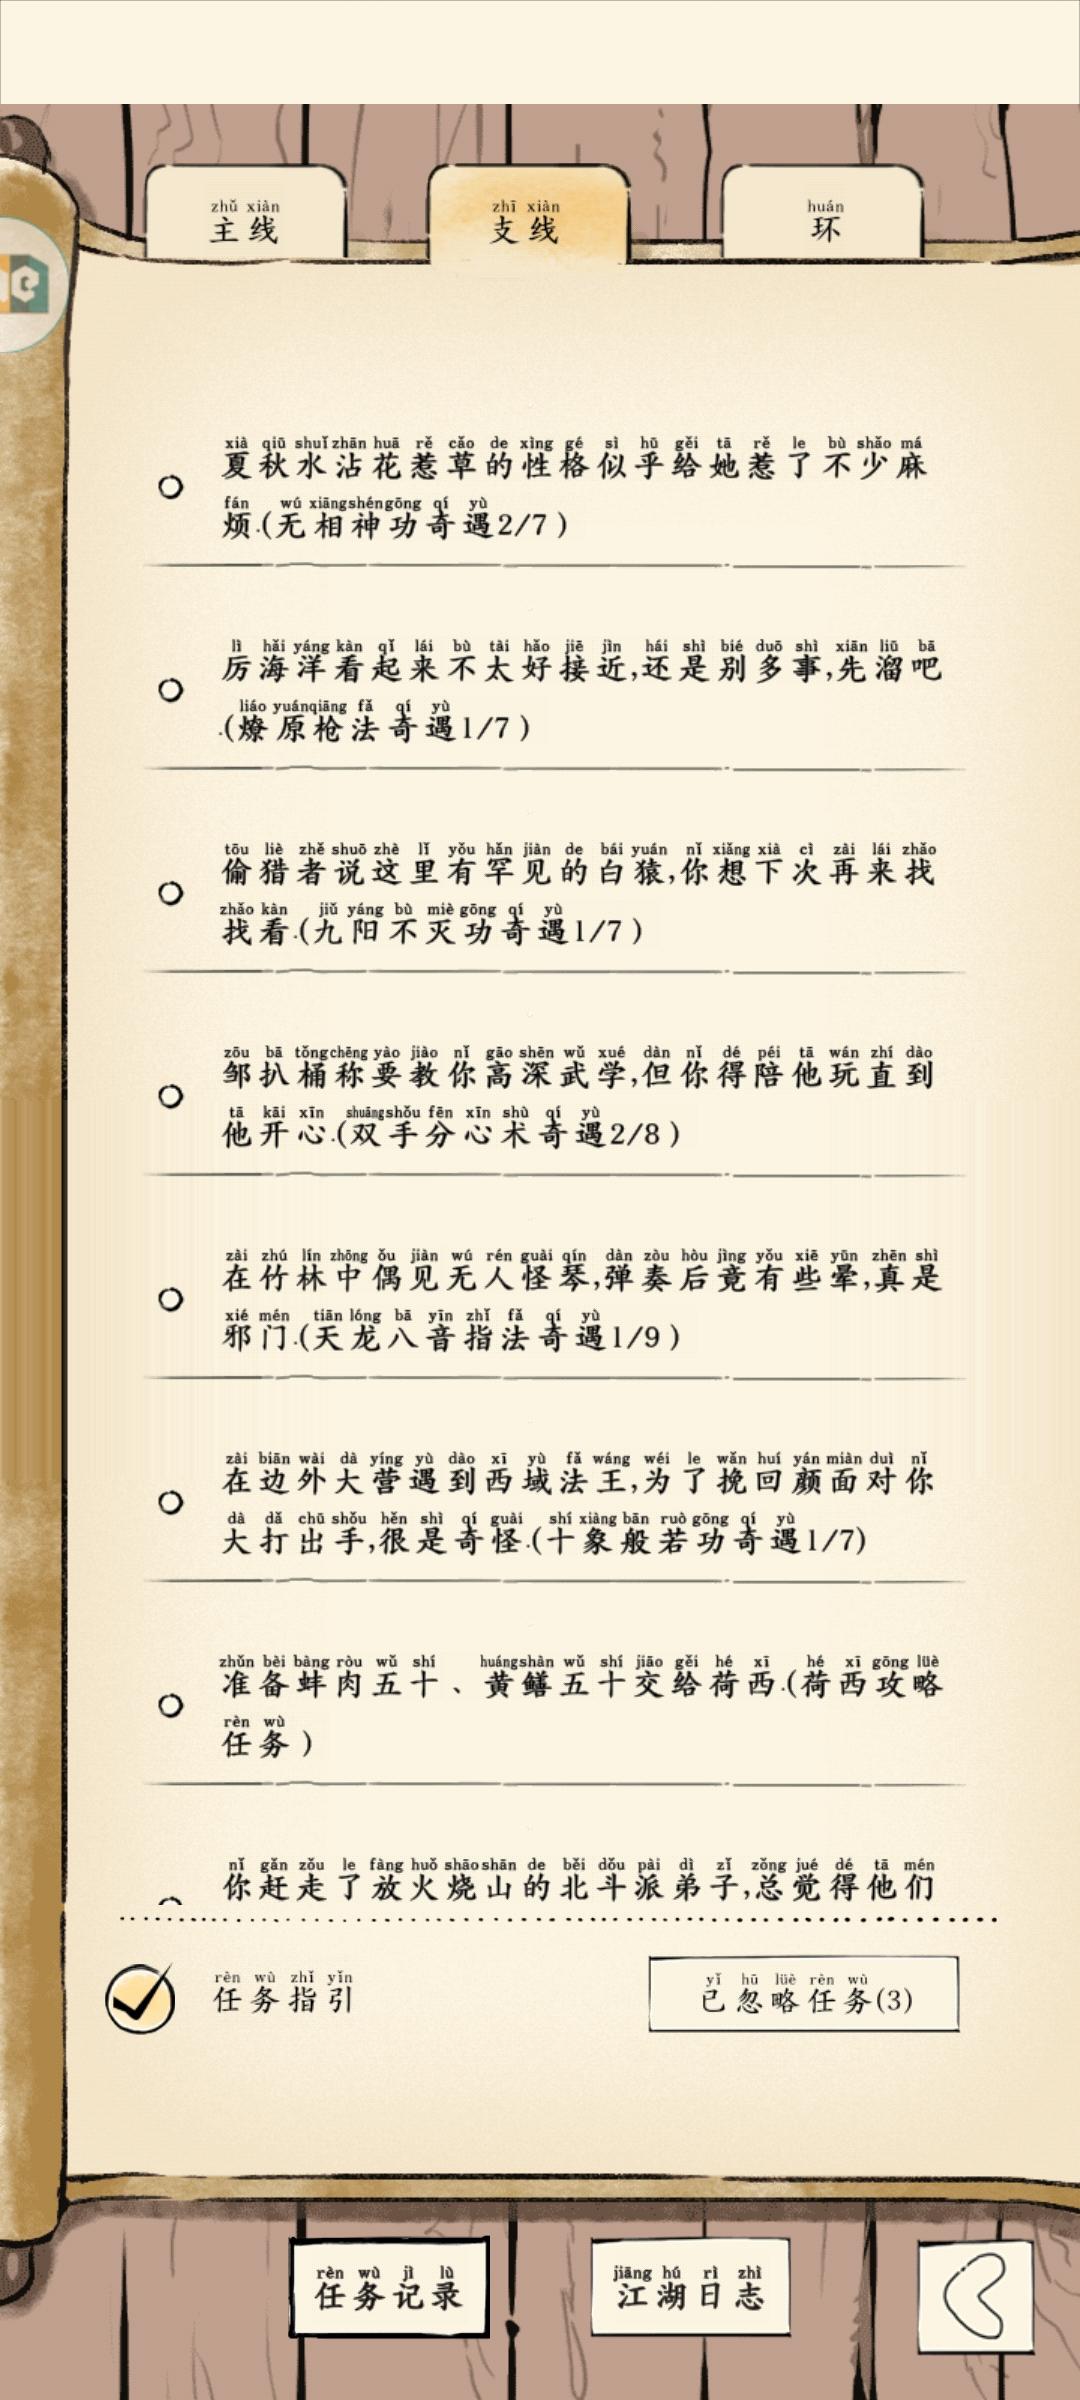 zhǔ xiàn
主线
zhī xiàn
支线
huán
环
xià qiū shuǐ zhān huā rě cǎo de xìng gé sì hū gěi tā rě le bù shǎo má
夏秋水沾花惹草的性格似乎给她惹了不少麻
fán wú xiāng shén gōng qí yù
烦.(无相神功奇遇2/7)
lì hǎi yáng kàn qǐ lái bù tài hǎo jiē jìn hái shì bié duō shì xiān liū bā
厉海洋看起来不太好接近,还是别多事,先溜吧
liáo yuán qiāng fǎ qí yù
.(燎原枪法奇遇1/7)
tōu liè zhě shuō zhè lǐ yǒu hǎn jiàn de bái yuán nǐ xiǎng xià cì zài lái zhǎo
偷猎者说这里有罕见的白猿,你想下次再来找
zhǎo kàn jiǔ yáng bù miè gōng qí yù
找看.(九阳不灭功奇遇1/7)
zōu bā tǒng chēng yào jiào nǐ gāo shēn wǔ xué dàn nǐ dé péi tā wán zhí dào
邹扒桶称要教你高深武学,但你得陪他玩直到
tā kāi xīn shuāng shǒu fēn xīn shù qí yù
他开心.(双手分心术奇遇2/8)
zài zhú lín zhōng ǒu jiàn wú rén guài qín dàn zòu hòu jìng yǒu xiē yūn zhēn shì
在竹林中偶见无人怪琴,弹奏后竟有些晕,真是
xié mén tiān lóng bā yīn zhǐ fǎ qí yù
邪门.(天龙八音指法奇遇1/9)
zài biān wài dà yíng yù dào xī yù fǎ wáng wéi le wǎn huí yán miàn duì nǐ
在边外大营遇到西域法王,为了挽回颜面对你
dà dǎ chū shǒu hěn shì qí guài shí xiàng bān ruò gōng qí yù
大打出手,很是奇怪.(十象般若功奇遇1/7)
zhǔn bèi bàng ròu wǔ shí huáng shàn wǔ shí jiāo gěi hé xī hé xī gōng lüè
准备蚌肉五十、黄鳝五十交给荷西.(荷西攻略
rèn wù
任务)
nǐ gǎn zǒu le fàng huǒ shāo shān de běi dǒu pài dì zǐ zǒng jué dé tā mén
你赶走了放火烧山的北斗派弟子,总觉得他们
rèn wù zhǐ yǐn
任务指引
yǐ hū lüè rèn wù
已忽略任务(3)
rèn wù jì lù
任务记录
jiāng hú rì zhì
江湖日志